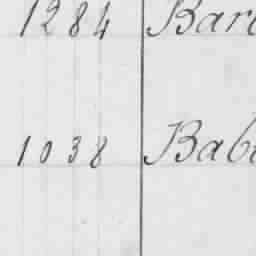 1284 Bar
1038 Bab